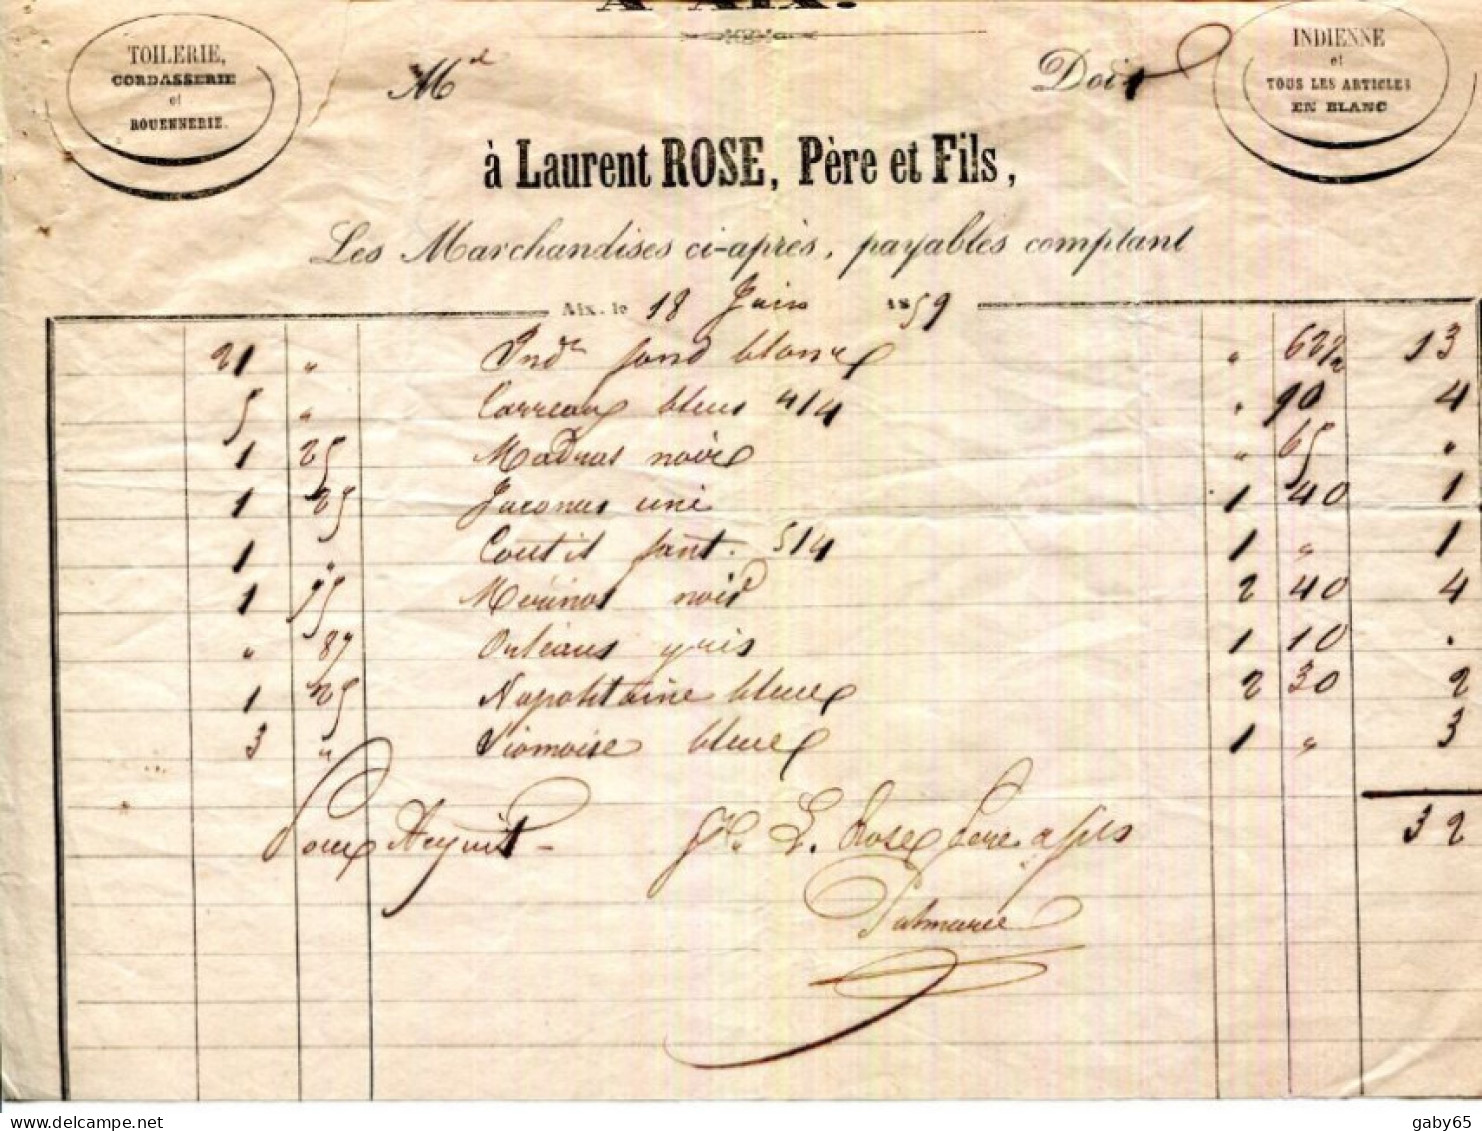 A AIX.
TOILERIE,
CORDASSERIE
et
ROUENNERIE.
INDIENNE
et
TOUS LES ARTICLES
EN BLANC
Md Doit
à Laurent ROSE, Père et Fils,
Les Marchandises ci-après, payables comptant
Aix, le 18 Juin 1859
21 " Indne fond blanc " 62 1/2 13
5 " Carreaux bleus 4/4 " 90 4
1 25 Madras noir " 65 "
1 25 Jaconas uni 1 40 1
1 " Coutil fant. 5/4 1 " 1
1 75 Mérinos noir 2 40 4
" 87 Orléans gris 1 10 .
1 25 Napolitaine bleue 2 30 2
3 " Siamoise bleue 1 " 3
32
Pour Acquit - L. Rose Père & fils
delcampe.net
gaby65